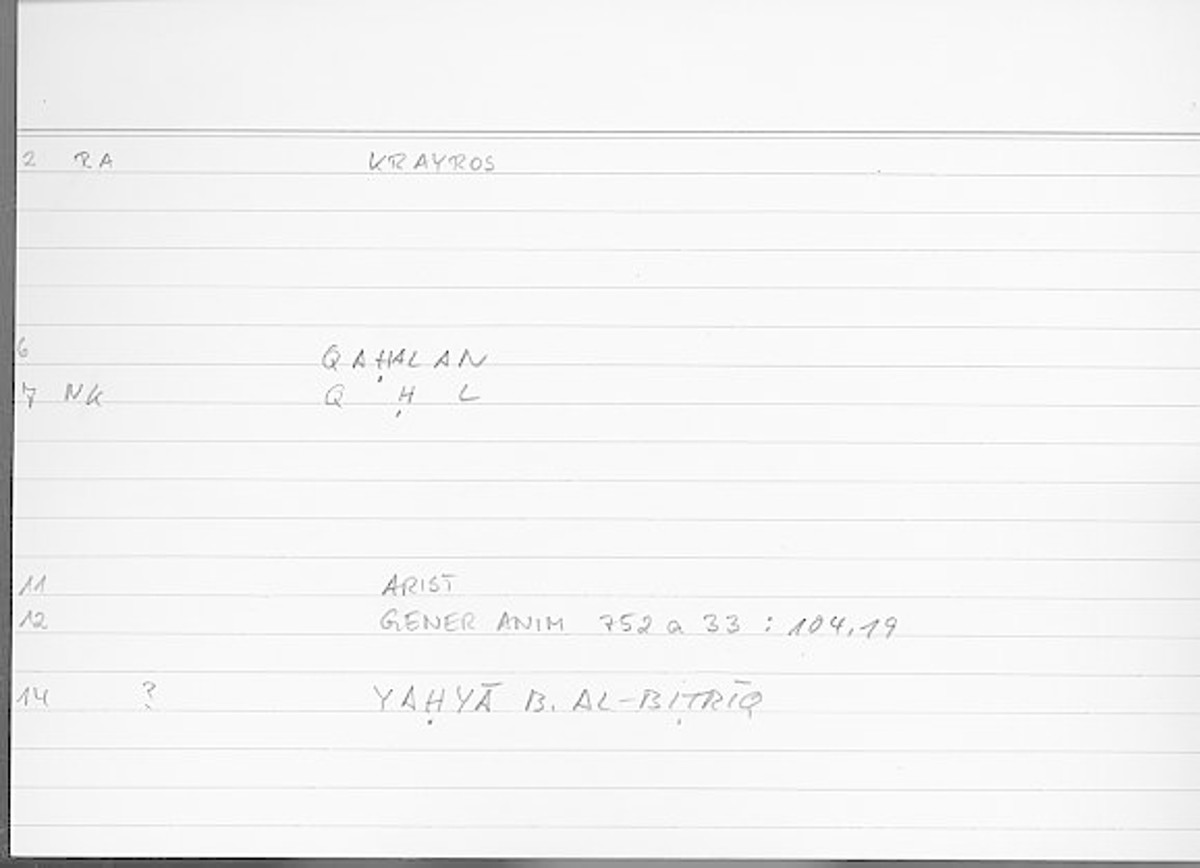 2 RA KRAYROS
6 QAḤALAN
7 NK Q Ḥ L
11 ARIST
12 GENER ANIM 752 a 33 : 104,19
14 ? YAḤYĀ B. AL-BIṬRĪQ